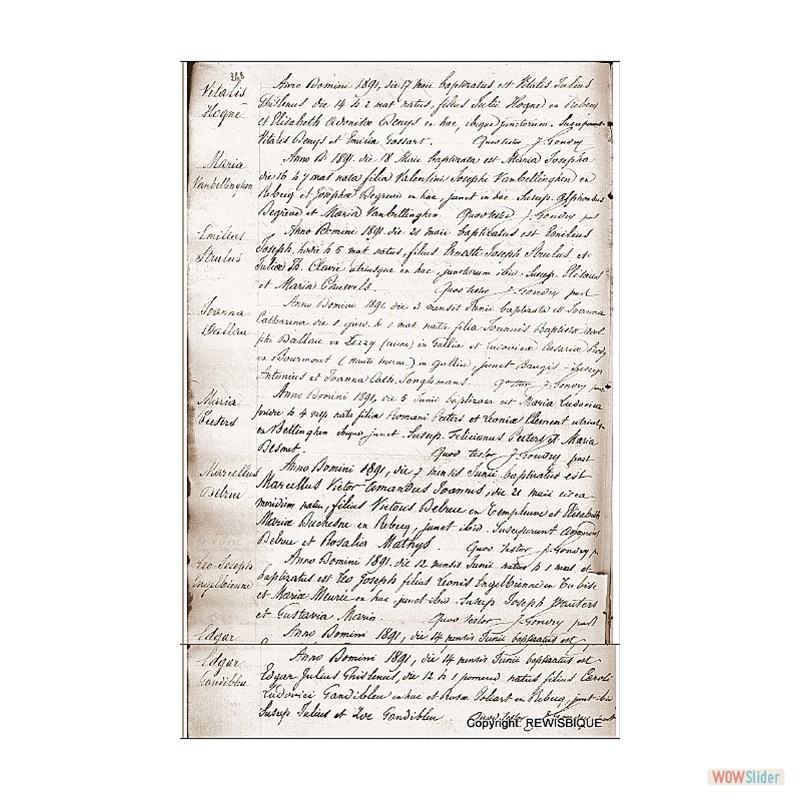 248
Vitalis
Hoqne
Anno Domini 1891, die 17 maii baptizatus est Vitalis Julius
Ghislenus die 14 h 2 mat. natus, filius Julii Hoqne ex Rebecq
et Elisabeth Denys ex hac, ibique junctorum. Susceperunt
Vitalis Denys et Emilia Gossart. Quod testor J. Gondry
Maria
Vanbellinghen
Anno D. 1891. die 18 Maii baptizata est Maria Josepha
die 16 h 7 mat nata filia Valentini Josephi Vanbellinghen ex
Rebecq et Josephæ Degreve ex hac, junct in hac. Susup. Alphonsus
Degreve et Maria Vanbellinghen. Quod testor J. Gondry past
Emilius
Strulus
Anno Domini 1891. die 21 maii baptizatus est Emilius
Joseph, hodie h 5 mat natus, filius Ernesti Joseph Strulus et
Juliæ Th. utriusque ex hac, junctorum ibid. Susup.
et Maria Pauwels. Quod testor J. Gondry past
Joanna
Dallau
Anno Domini 1891, die 3 mensis Junii baptizata est Joanna
Catharina die 1 h 1 mat nata filia Joannis Baptistæ
Dallau ex in Gallia et
ex Bourmont (Haute marne) in Gallia, junct
Antonius et Joanna Cath. Jonghmans. Q. testor J. Gondry past
Maria
Peeters
Anno Domini 1891, die 5 Junii baptizata est Maria Ludovica
pridie h 4 nata filia Romani Peeters et Leoniæ Clement
ex Bellinghen ibique junct. Susup. Felicianus Peeters et Maria
Desmet. Quod testor J. Gondry past
Marcellus
Debrue
Anno Domini 1891, die 7 mensis Junii baptizatus est
Marcellus Victor Amandus Joannes, die 21 maii circa
meridiem natus, filius Victoris Debrue ex Templeuve et Elisabeth
Mariæ Duchesne ex Rebecq, junct ibid. Susceperunt
Debrue et Rosalia Mathys. Quod testor J. Gondry p
Leo Joseph
Engelbienne
Anno Domini 1891. die 12 mensis Junii natus h 1 mat et
baptizatus est Leo Joseph filius Leonis Engelbienne ex Tubise
et Maria Meurée ex hac, junct ibid. Susup Joseph Wauters
et Gustavia Marin. Quod testor J. Gondry past
Edgar
Anno Domini 1891, die 14 mensis Junii baptizatus est
Edgar
Gandibleu
Anno Domini 1891, die 14 mensis Junii baptizatus est
Edgar Julius Ghislenus, die 12 h 1 pomerid natus filius Caroli
Ludovici Gandibleu ex hac et Rosæ Tollart ex Rebecq, junct ibi
Susup Julius et Zoe Gandibleu Quod testor J. Gondry past
Copyright REWISBIQUE
WOWSlider